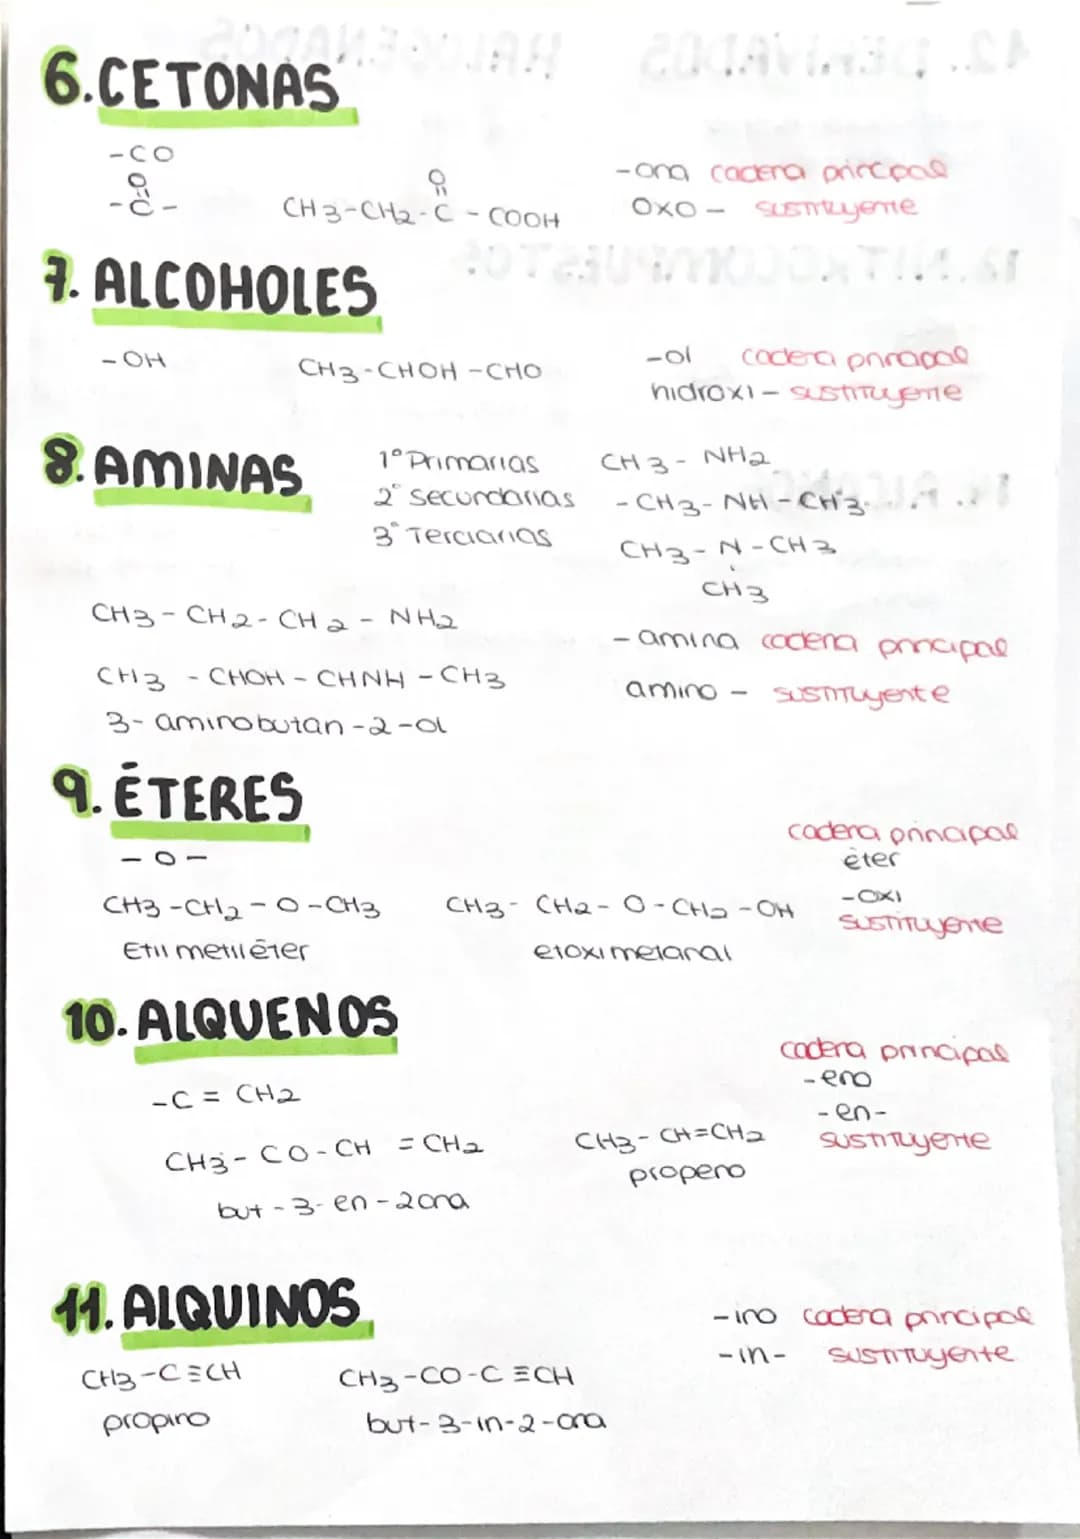 6.CETONAS
-CO
O
-C-
CH3-CH2-C-COOH
O
-ona cadena principal
OXO- sustituyente
7. ALCOHOLES
-OH
CH3-CHOH-CHO
-ol cadena principal
hidroxi- sustituyente
8. AMINAS
1º Primarias CH3-NH2
2º Secundarias -CH3-NH-CH3
3º Terciarias CH3-N-CH3
CH3
CH3-CH2-CH2-NH2
-amina cadena principal
CH3-CHOH-CHNH-CH3
amino- sustituyente
3-aminobutan-2-ol
9. ÉTERES
-O-
cadena principal
éter
-oxi
sustituyente
CH3-CH2-O-CH3
Etil metil éter
CH3-CH2-O-CH2-OH
etoximetanal
10. ALQUENOS
-C=CH2
cadena principal
-eno
-en-
sustituyente
CH3-CO-CH=CH2
but-3-en-2ona
CH3-CH=CH2
propeno
11. ALQUINOS
-ino cadena principal
-in- sustituyente
CH3-C≡CH
propino
CH3-CO-C≡CH
but-3-in-2-ona